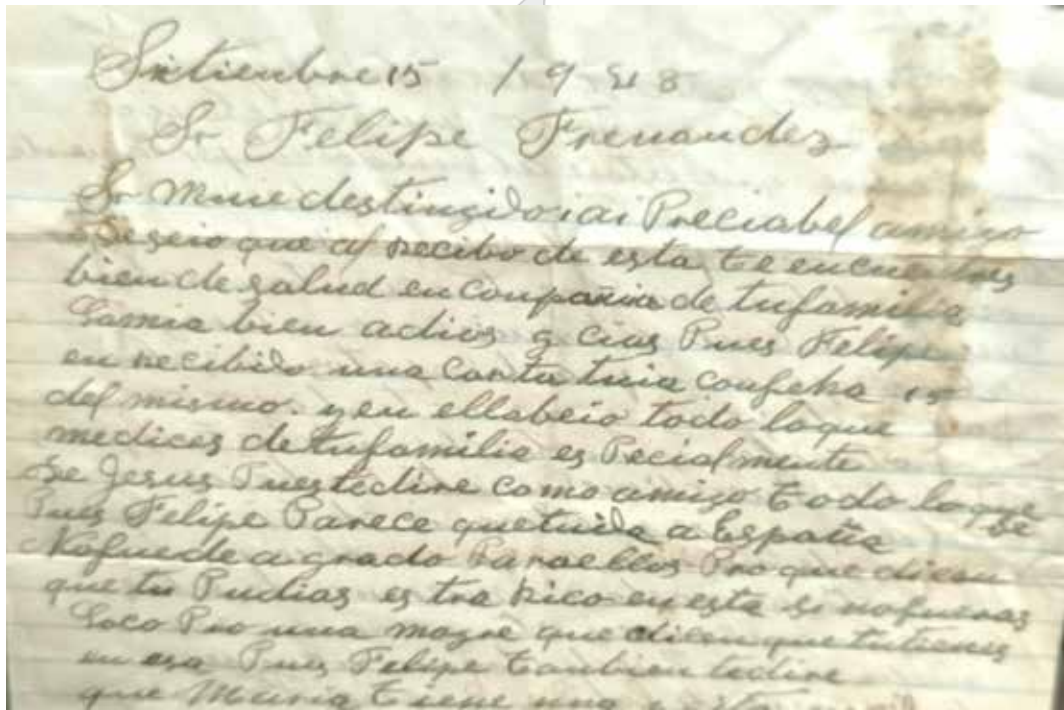 Sintienbre 15 19 28
Sr Felipe Frenandez
Sr Mui destingido i ai Preciabel amigo
deseio que al recibo de esta te encuentres
bien de salud en Conpañia de tu familia
la mia bien adios g cias Pues Felipe
en recibido una Carta tuia con feha 15
del mismo. y en ella beio todo loque
medices detufamilia es Pecialmente
de Jesus Puestedire como amigo todo loque se
Pues Felipe Parece quetuida a España
Nofuede a grado Paraellos Pro que dicen
que tu Pudias es tra Rico en esta si nofueras
loco Pro una mogre que dicen que tutienes
en esa Pues Felipe tanbien tedire
que Maria tiene una